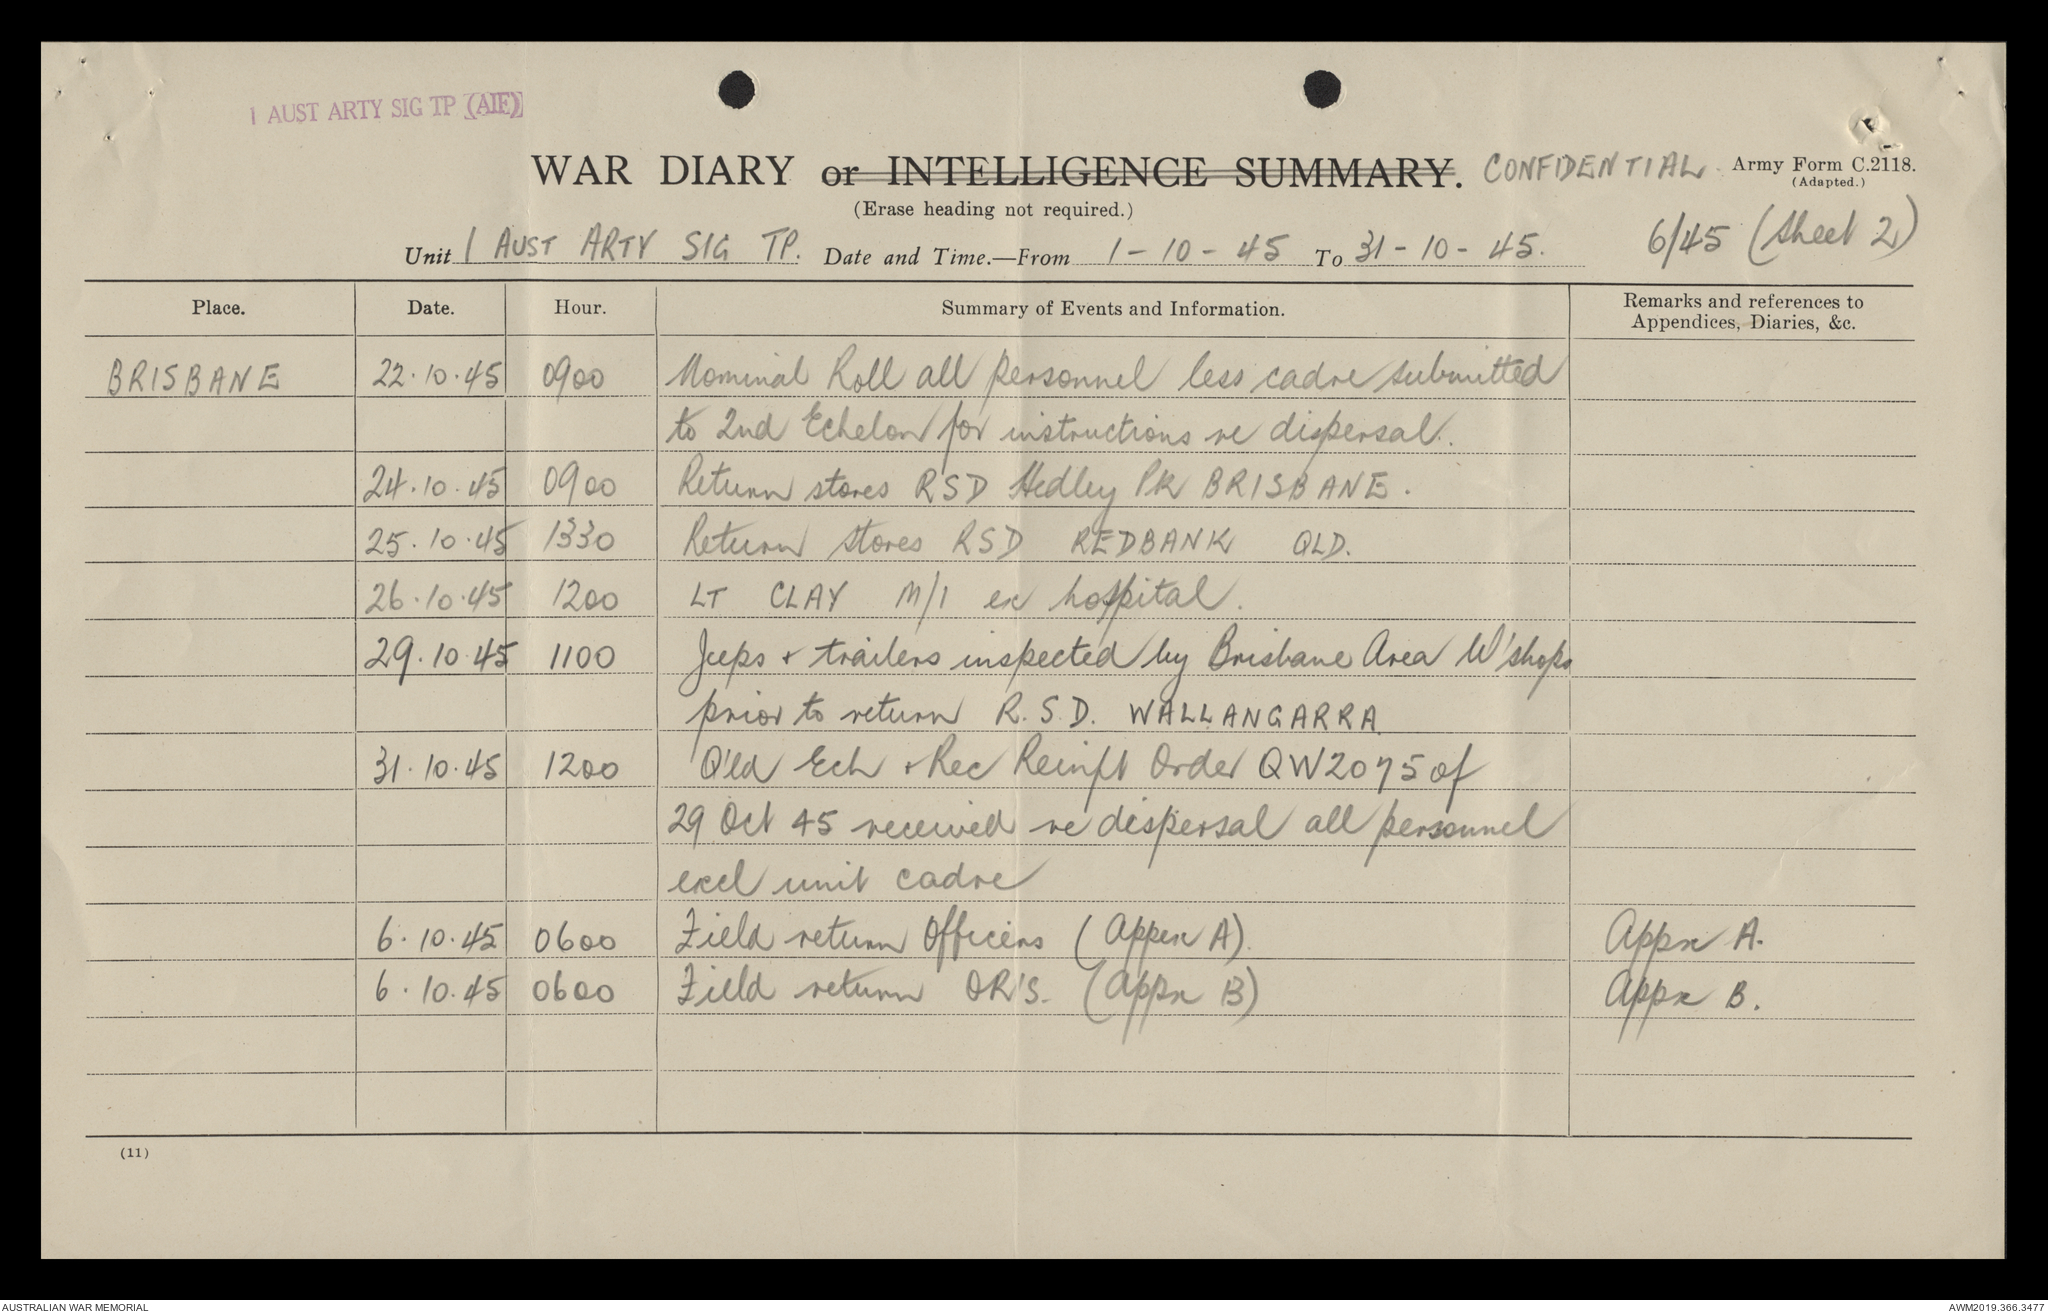 1 AUST ARTY SIG TP (AIF)
WAR DIARY or INTELLIGENCE SUMMARY. CONFIDENTIAL Army Form C.2118.
(Adapted.)
(Erase heading not required.)
Unit 1 AUST ARTY SIG TP. Date and Time.—From 1-10-45 To 31-10-45. 6/45 (Sheet 2)
Place. Date. Hour. Summary of Events and Information. Remarks and references to
Appendices, Diaries, &c.
BRISBANE 22.10.45 0900 Nominal Roll all personnel less cadre submitted
to 2nd Echelon for instructions re dispersal.
24.10.45 0900 Return stores RSD Hedley Pk BRISBANE.
25.10.45 1330 Return stores RSD REDBANK QLD.
26.10.45 1200 LT CLAY M/I ex hospital.
29.10.45 1100 Jeeps & trailers inspected by Brisbane Area W'shops
prior to return R.S.D. WALLANGARRA.
31.10.45 1200 Q'ld Ech & Rec Reinft Order QW2075 of
29 Oct 45 received re dispersal all personnel
excl unit cadre
6.10.45 0600 Field return Officers (Appex A). Appx A.
6.10.45 0600 Field return OR'S. (Appx B) Appx B.
(11)
AUSTRALIAN WAR MEMORIAL AWM2019.366.3477